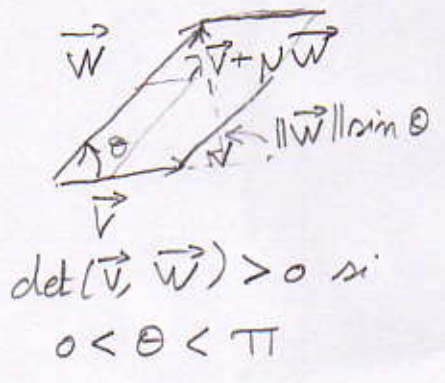 W⃗
λV⃗ + μW⃗
θ
‖W⃗‖ sin θ
V⃗
det(V⃗, W⃗) > 0 si
0 < θ < π